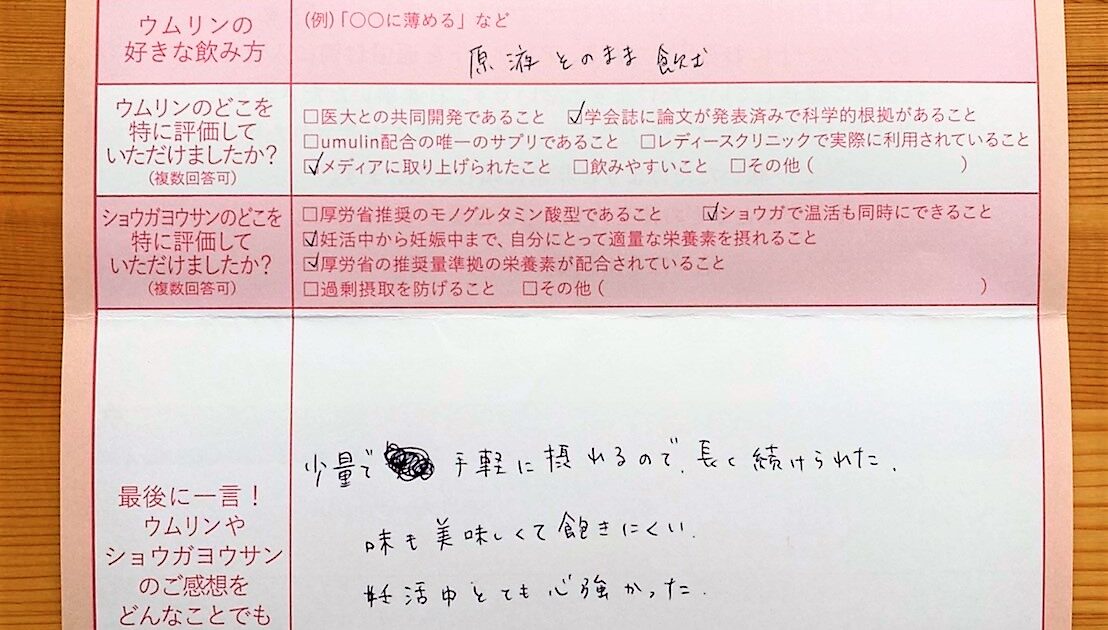 ウムリンの
好きな飲み方
(例)「〇〇に薄める」など
原液そのまま飲む
ウムリンのどこを
特に評価して
いただけましたか?
(複数回答可)
□医大との共同開発であること ☑学会誌に論文が発表済みで科学的根拠があること
□umulin配合の唯一のサプリであること □レディースクリニックで実際に利用されていること
☑メディアに取り上げられたこと □飲みやすいこと □その他( )
ショウガヨウサンのどこを
特に評価して
いただけましたか?
(複数回答可)
□厚労省推奨のモノグルタミン酸型であること ☑ショウガで温活も同時にできること
☑妊活中から妊娠中まで、自分にとって適量な栄養素を摂れること
☑厚労省の推奨量準拠の栄養素が配合されていること
□過剰摂取を防げること □その他( )
最後に一言!
ウムリンや
ショウガヨウサン
のご感想を
どんなことでも
少量で 手軽に摂れるので、長く続けられた.
味も美味しくて飽きにくい.
妊活中とても心強かった.